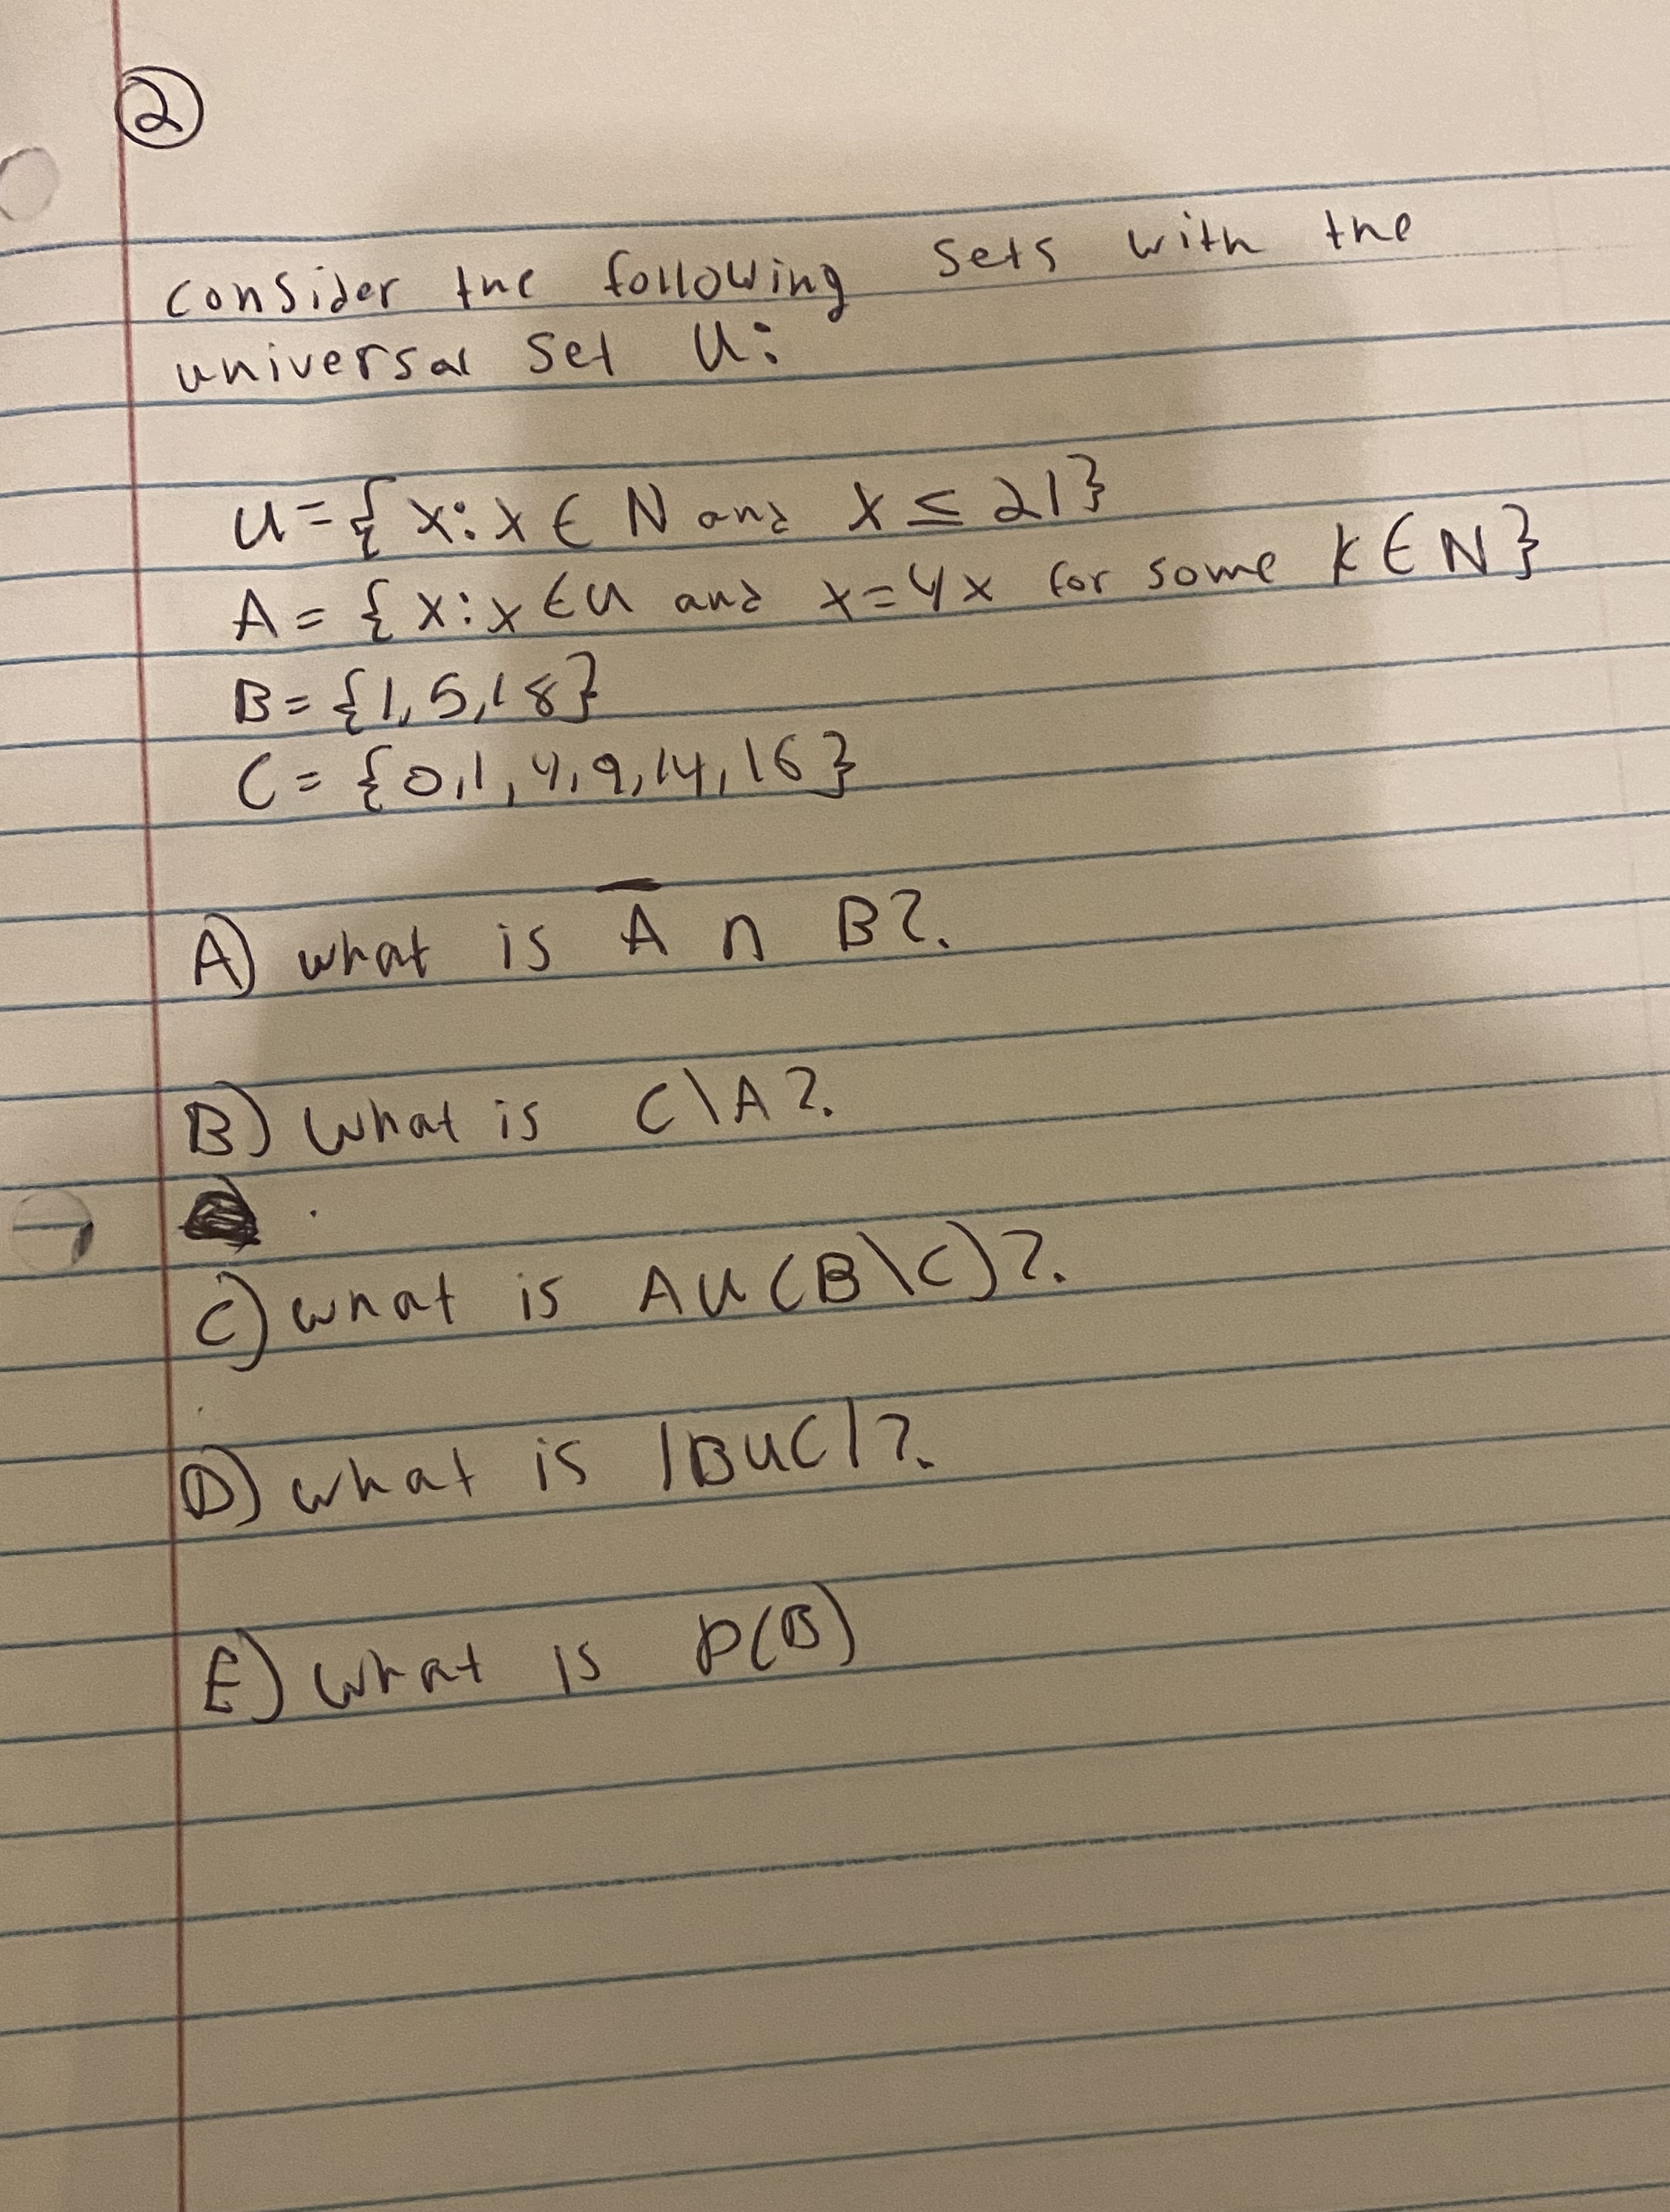 2
Consider the following sets with the
universal set U:
U = { x : x ∈ N and x ≤ 21 }
A = { x : x ∈ U and x = 4x for some k ∈ N }
B = { 1, 5, 18 }
C = { 0, 1, 4, 9, 14, 16 }
A) what is A̅ ∩ B?
B) What is C \ A?
C) what is A ∪ (B \ C)?
D) what is |B ∪ C|?
E) what is P(B)